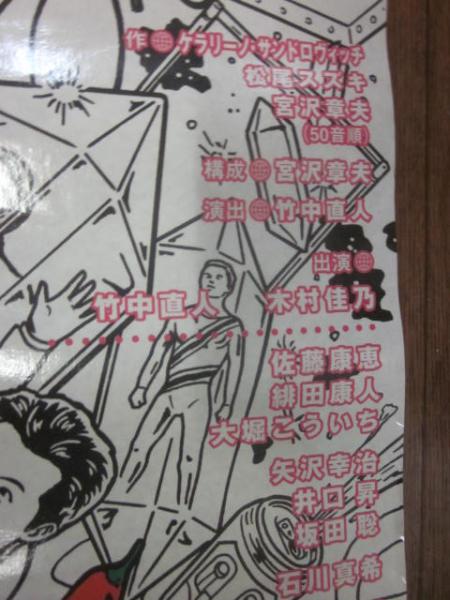 作 ケラリーノ・サンドロヴィッチ
松尾スズキ
宮沢章夫
(50音順)
構成 宮沢章夫
演出 竹中直人
出演
竹中直人 木村佳乃
佐藤康恵
緋田康人
大堀こういち
矢沢幸治
井口昇
坂田聡
石川真希